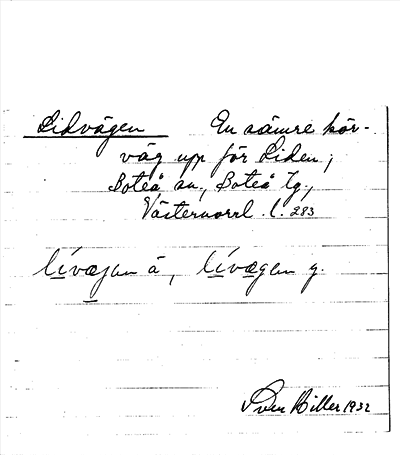 Lidvägen En sämre kör-
väg upp för Liden;
Boteå sn., Boteå tg.,
Västernorrl. l. 283
lívægen ä, lívægen y.
Sven Hiller 1932